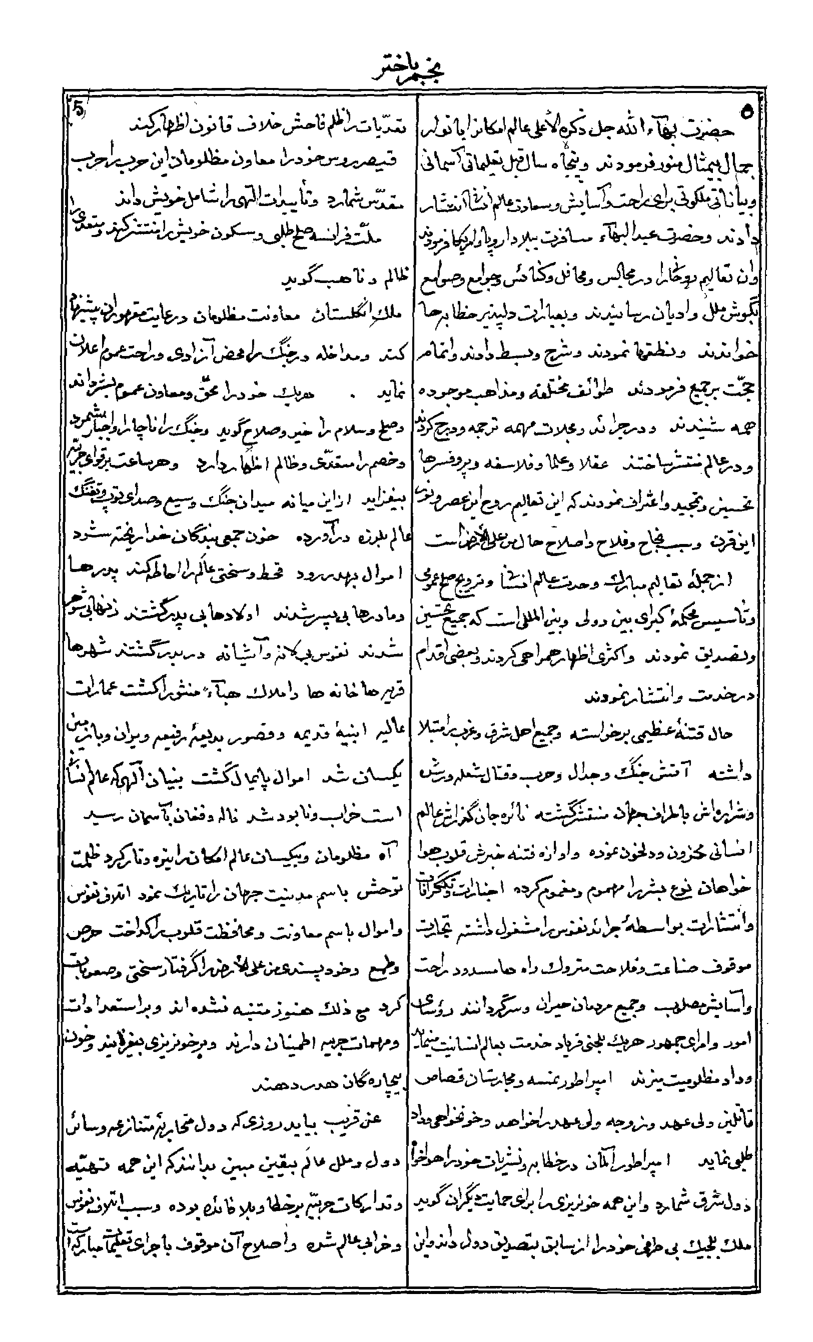 نجم باختر
۵
حضرت بهاءالله جل ذکره الأعلی عالم امکانرا بانوار
جمال بیمثال منور فرمودند وپنجاه سال قبل تعلیماتی آسمانی
وبیاناتی ملکوتی برای راحت وآسایش وسعادت عالم انسانی انتشار
دادند وحضرت عبدالبهاء مسافرت ببلاد اروپا وامریکا فرمودند
وآن تعالیم روحانرا در مجالس ومحافل وکنائس وجوامع وصوامع
بگوش ملل وادیان رسانیدند وبعبارات دلپذیر خطابه ها
خواندند ونطقها نمودند وشرح وبسط دادند واتمام
حجّت بر جمیع فرمودند طوائف مختلفه ومذاهب موجوده
همه شنیدند ودر جرائد ومجلات مهمه ترجمه ودرج کردند
ودر عالم منتشر ساختند عقلا وعلما وفلاسفه وپروفسرها
تحسین وتمجید واعتراف نمودند که این تعالیم روح این عصر ونور
این قرن وسبب نجاح وفلاح واصلاح حال من علی الارض است
از جملهٔ تعالیم مبارک وحدت عالم انسانی وترویج صلح عمومی
وتأسیس محکمهٔ کبرای بین دولی وبین المللی است که جمیع تحسین
وتصدیق نمودند واکثری اظهار همراهی کردند وبعضی اقدام
در خدمت وانتشار نمودند
حال فتنهٔ عظیمی برخواسته وجمیع اهل شرق وغرب را مبتلا
داشته آتش جنگ وجدال وحرب وقتال شعله ورش
وشراره اش باطراف جهان منتشر گشته نائره جان گدازش عالم
انسانی محزون ودلخون نموده وآوازه فتنه خبرش قلوب هوا
خواهان نوع بشر را مهموم ومغموم کرده اخبارات وتلگرافات
وانتشارات بواسطهٔ جرائد نفوس را مشغول داشته تجارت
موقوف صناعت وفلاحت متروک راه ها مسدود راحت
وآسایش مصلوب وجمیع مردمان حیران وسرگردانند رؤسای
امور وامرای جمهور هریک بلحنی فریاد خدمت بعالم انسانیت مینماید
وداد مظلومیت میزند امپراطور نمسه ومجارستان قصاص
قاتلین ولی عهد وزوجه ولی عهد را خواهد وخونخواهی وداد
طلبی نماید امپراطور آلمان در خطابه ونشریات خود را هواخواه
دول شرق شمارد واین همه خونریزی را برای حمایت دیگران گوید
ملک بلجیک بی طرفی خود را از سابق بتصدیق دول داند واین
5
تعدّیات را ظلم فاحش خلاف قانون اظهار کند
قیصر روس خود را معاون مظلومان این حرب را حرب
مقدّس شمارد وتأییدات الهی را شامل خویش داند
ملّت فرانسه صلح طلبی وسکون خویش را منتشر کند ومتعدی را
ظالم وناهب گوید
ملک انگلستان معاونت مظلومان ورعایت مقهوران پیشنهاد
کند ومداخله در جنگ را محض آزادی وراحت عموم اعلان
نماید . هریک خود را محقّ ومعاون عموم بشر داند
وصلح وسلام را خیر وصلاح گوید وجنگ را ناچار واجبار شمرد
وخصم را متعدّی وظالم اظهار دارد وهر ساعت بر قوای حربیّه
بیفزاید از این میانه میدان جنگ وسیع وصدای توپ وتفنگ
عالم بلرزه درآورده خون جمعی بندگان خدا ریخته شود
اموال بهدر رود قحط وسختی عالم را احاطه کند پدرها
ومادرها بی پسر شدند اولادها بی پدر گشتند زنها بی شوهر
شدند نفوس بی لانه وآشیانه دربدر گشتند شهرها
قریه ها خانه ها واملاک هباءً منثورا گشت عمارات
عالیه ابنیهٔ قدیمه وقصور بدیعهٔ رفیعه ویران وبا زمین
یکسان شد اموال پایمال گشت بنیان الهی که عالم انسانی
است خراب ونابود شد ناله وفغان بآسمان رسید
آه مظلومان وبیکسان عالم امکان را تیره وتار کرد ظلمت
توحش باسم مدنیت جهان را تاریک نمود اتلاف نفوس
واموال باسم معاونت ومحافظت قلوب را گداخت حرص
وطمع وخود پسندی من علی الارض را گرفتار سختی وصعوبات
کرد مع ذلک هنوز متنبه نشده اند وبر استعدادات
ومهمات حربیه اطمینان دارند وبر خونریزی بیفزایند وخون
بیچاره گان هدر دهند
عن قریب بیاید روزی که دول متحاربهٔ متنازعه وسائر
دول وملل عالم بیقین مبین بدانند که این همه تهیّه
وتدارکات حربیّه بر خطا وبلا فائده بوده وسبب اتلاف نفوس
وخرابی عالم شده واصلاح آن موقوف باجرای تعلیمات مبارکه است